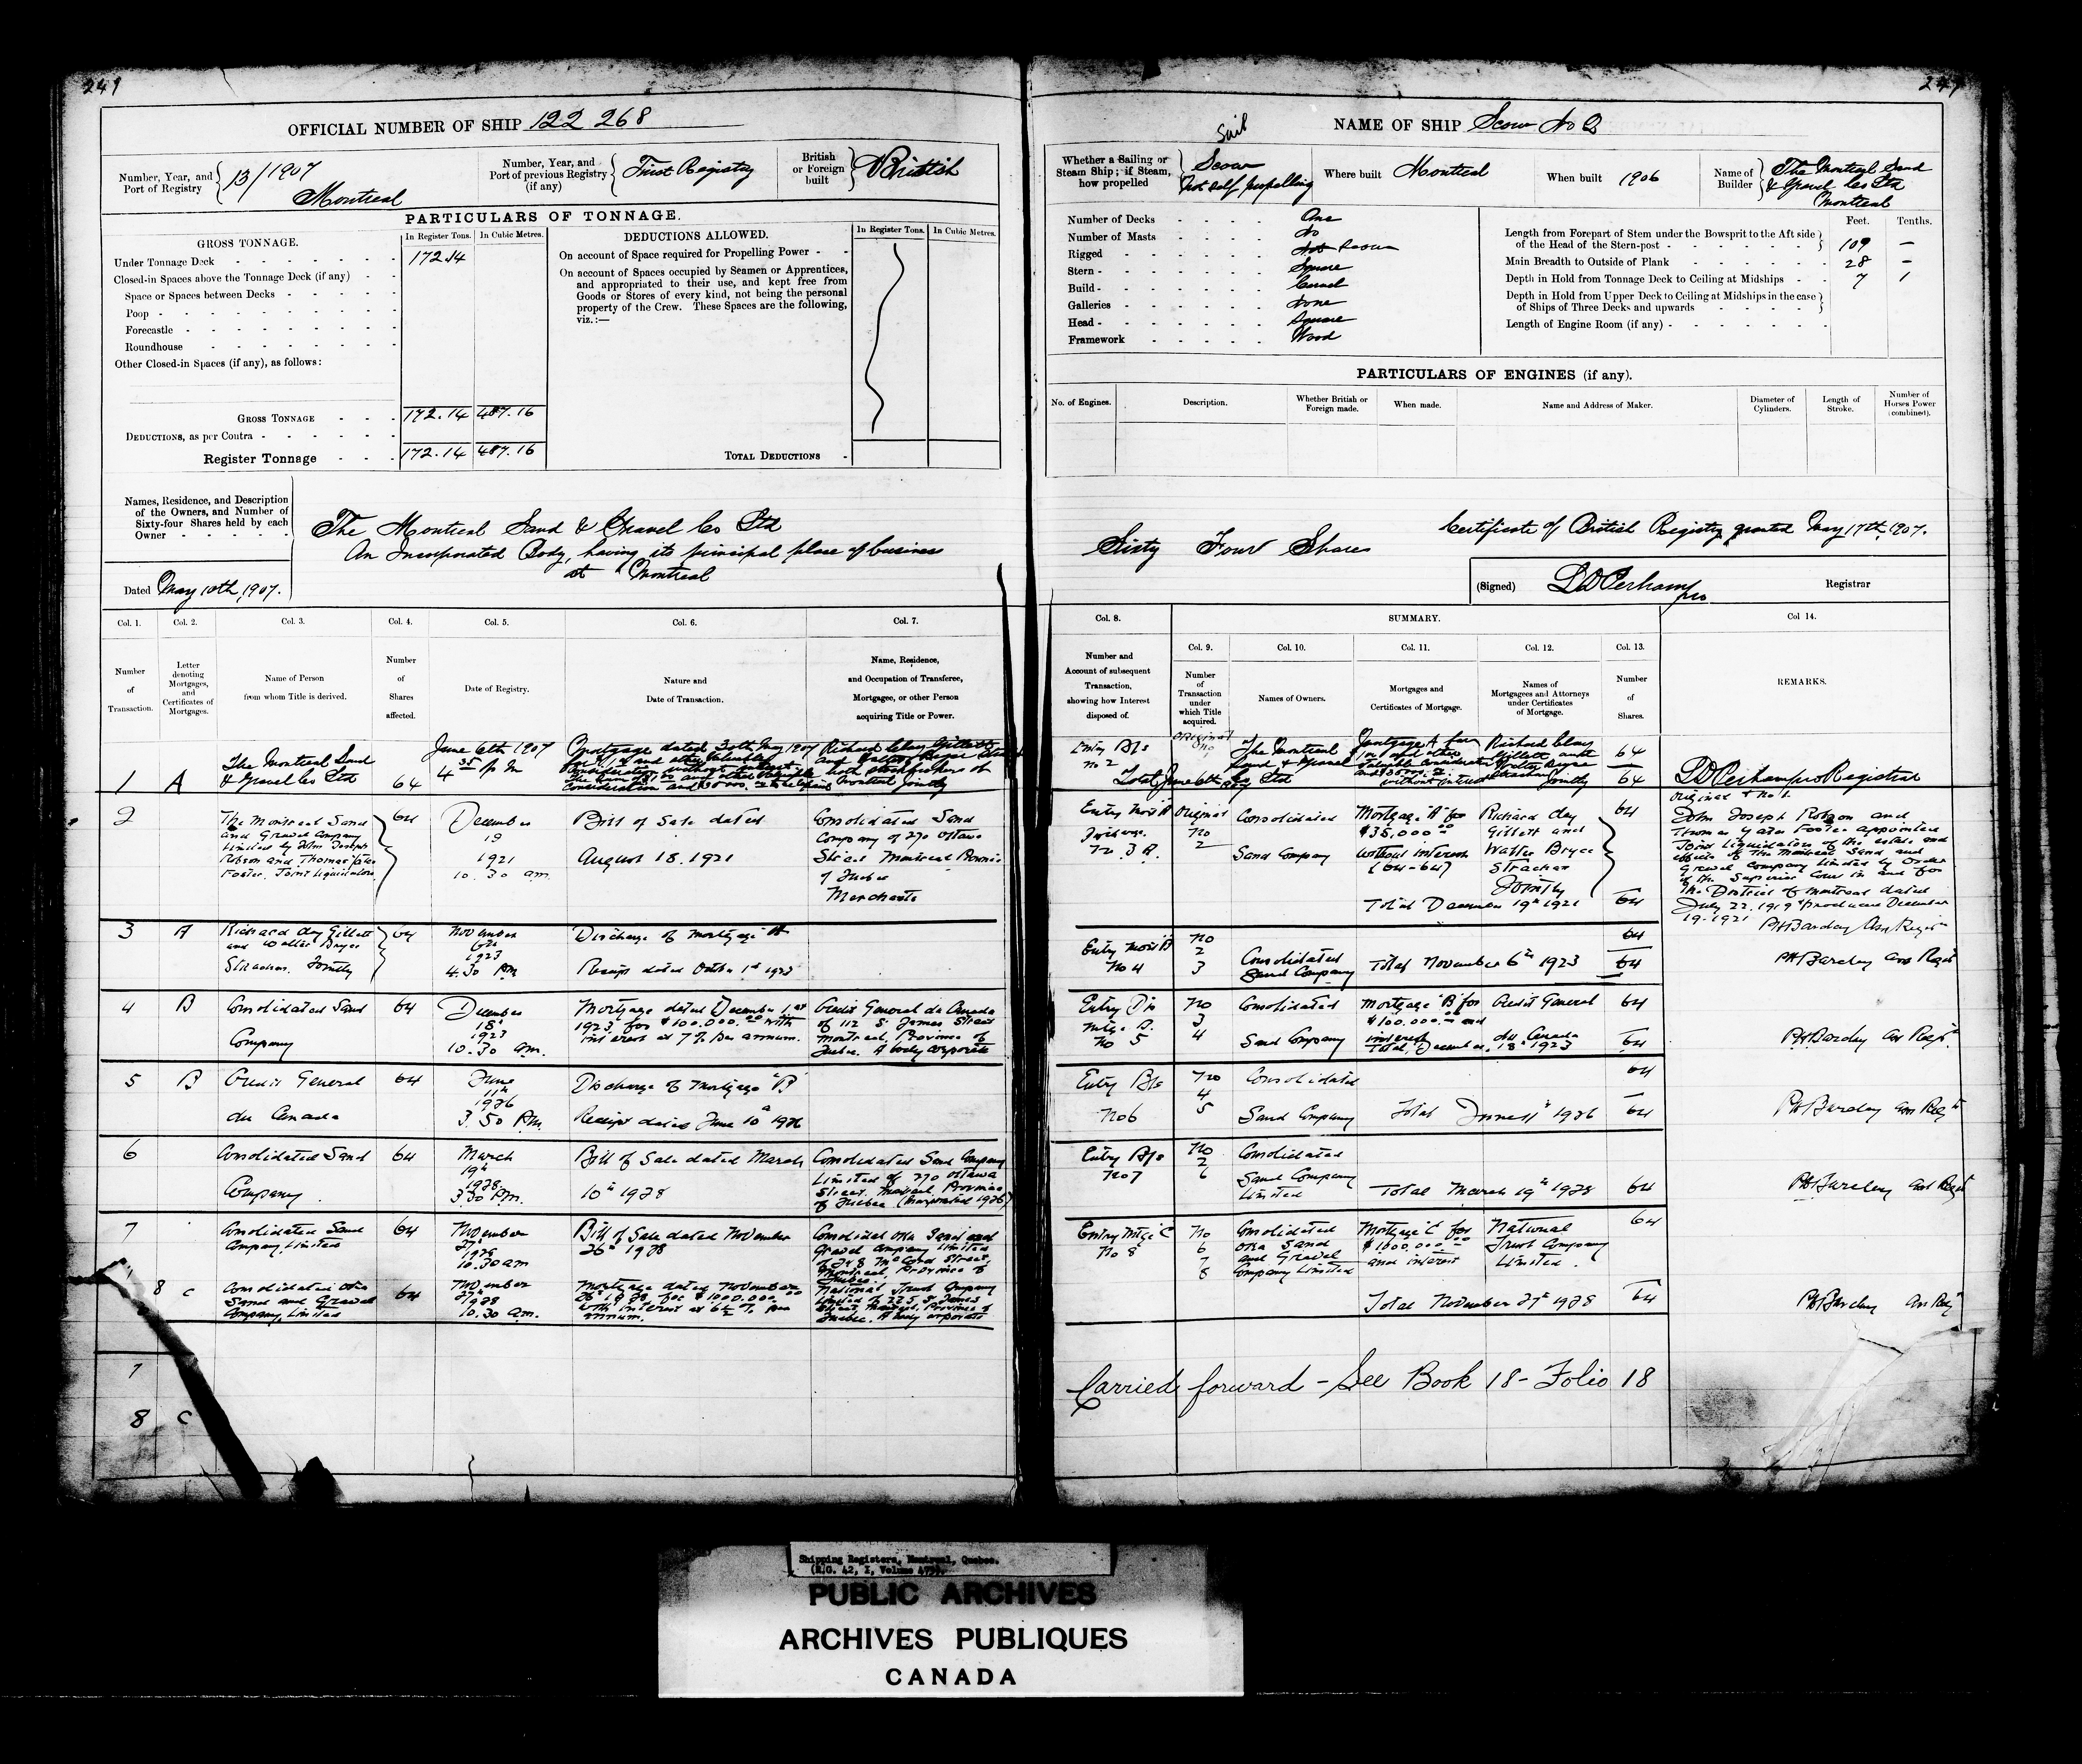 249
OFFICIAL NUMBER OF SHIP 122 268
Number, Year, and Port of Registry 13/1907 Montreal
Number, Year, and Port of previous Registry (if any) First Registry
British or Foreign built British
PARTICULARS OF TONNAGE.
GROSS TONNAGE.
In Register Tons. In Cubic Metres.
Under Tonnage Deck 172.14
Closed-in Spaces above the Tonnage Deck (if any)
Space or Spaces between Decks
Poop
Forecastle
Roundhouse
Other Closed-in Spaces (if any), as follows:
GROSS TONNAGE 172.14 487.16
DEDUCTIONS, as per Contra
Register Tonnage 172.14 487.16
DEDUCTIONS ALLOWED.
In Register Tons. In Cubic Metres.
On account of Space required for Propelling Power
On account of Spaces occupied by Seamen or Apprentices,
and appropriated to their use, and kept free from
Goods or Stores of every kind, not being the personal
property of the Crew. These Spaces are the following,
viz.:—
TOTAL DEDUCTIONS
Names, Residence, and Description
of the Owners, and Number of
Sixty-four Shares held by each
Owner
The Montreal Sand & Gravel Co Ltd
An Incorporated Body, having its principal place of business
at Montreal
Dated May 10th, 1907.
Col. 1. Col. 2. Col. 3. Col. 4. Col. 5. Col. 6. Col. 7.
Number of Transaction.
Letter denoting Mortgages, and Certificates of Mortgages.
Name of Person from whom Title is derived.
Number of Shares affected.
Date of Registry.
Nature and Date of Transaction.
Name, Residence, and Occupation of Transferee, Mortgagee, or other Person acquiring Title or Power.
1 A The Montreal Sand & Gravel Co Ltd 64
June 6th 1907 4 35 p m
Mortgage dated 30th May 1907
2 The Montreal Sand
and Gravel Company
Limited by John Joseph
Robson and Thomas Yates
Foster. Joint Liquidators
64 December 19 1921 10.30 am.
Bill of Sale dated August 18. 1921
Consolidated Sand
Company of 270 Ottawa
Street Montreal Province
of Quebec
Merchants
3 A Richard Clay Gillett
and Walter Bryce
Strachan. Jointly
64 November 6th 1923 4.30 PM
Discharge of Mortgage "A"
Receipt dated October 1st 1923
4 B Consolidated Sand Company 64
December 18th 1923 10.30 am.
Mortgage dated December 1st
1923, for $100.000.00 with
interest at 7% per annum.
Credit General du Canada
of 112 St James Street
Montreal, Province of
Quebec. A body corporate
5 B Credit General du Canada 64
June 11th 1926 3.50 P.M.
Discharge of Mortgage "B"
Receipt dated June 10th 1926
6 Consolidated Sand Company. 64
March 19th 1928. 3.30 P.M.
Bill of Sale dated March 10th 1928
Consolidated Sand Company
Limited of 270 Ottawa
Street. Montreal, Province
of Quebec (Incorporated 1926)
7 Consolidated Sand Company Limited 64
November 27th 1928 10.30 am
Bill of Sale dated November 26th 1928
Consolidated Oka Sand and
Gravel Company Limited
8 C Consolidated Oka
Sand and Gravel
Company, Limited
64 November 27th 1928 10.30 am.
Mortgage dated November
26th 1928 for $1000.000.00
with interest at 6½ % per
annum.
National Trust Company
Limited of 225 St James
Street, Montreal, Province of
Quebec. A body corporate
7
8 C
249
NAME OF SHIP Scow No 2
Whether a Sailing or Steam Ship; if Steam, how propelled
Sail
Scow
Not self propelling
Where built Montreal
When built 1906
Name of Builder The Montreal Sand & Gravel Co Ltd Montreal
Number of Decks One
Number of Masts No
Rigged Scow
Stern Square
Build Carvel
Galleries None
Head Square
Framework Wood
Feet. Tenths.
Length from Forepart of Stem under the Bowsprit to the Aft side of the Head of the Stern-post 109 —
Main Breadth to Outside of Plank 28 —
Depth in Hold from Tonnage Deck to Ceiling at Midships 7 1
Depth in Hold from Upper Deck to Ceiling at Midships in the case of Ships of Three Decks and upwards
Length of Engine Room (if any)
PARTICULARS OF ENGINES (if any).
No. of Engines. Description. Whether British or Foreign made. When made. Name and Address of Maker. Diameter of Cylinders. Length of Stroke. Number of Horses Power (combined).
Sixty Four Shares
Certificate of British Registry granted May 17th, 1907.
(Signed) L D Perham pro Registrar
Col. 8. SUMMARY. Col 14.
Col. 9. Col. 10. Col. 11. Col. 12. Col. 13.
Number and Account of subsequent Transaction, showing how Interest disposed of.
Number of Transaction under which Title acquired.
Names of Owners.
Mortgages and Certificates of Mortgage.
Names of Mortgagees and Attorneys under Certificates of Mortgage.
Number of Shares.
REMARKS.
Entry B/s No 2
Original
The Montreal Sand & Gravel Co Ltd
Richard Clay Gillett and Walter Bryce Strachan Jointly
64
64
L D Perham pro Registrar
Original No
2
Consolidated
Sand Company
Mortgage "A" for
$35,000.00
without interest
(64-64)
Richard Clay
Gillett and
Walter Bryce
Strachan
Jointly
64
Total December 19th 1921 64
John Joseph Robson and
Thomas Yates Foster appointed
Joint Liquidators of the estate and
effects of the Montreal Sand and
Gravel Company Limited by Order
of the Superior Court in and for
the District of Montreal dated
July 22. 1919 Produced December
19. 1921
PH Barclay Ass Registrar
No 4
No 2 3 Consolidated Sand Company
64
Total November 6th 1923 64
PH Barclay Ass Regist
Entry Dis Mtge. B. No 5
No 3 4 Consolidated Sand Company
Mortgage "B" for $100.000.00 and interest
Credit General du Canada
64
Total, December 18th 1923 64
PH Barclay Ass Regist
Entry B/s No 6
No 4 5 Consolidated Sand Company
64
Total June 11th 1926 64
PH Barclay Ass Regist
Entry B/s No 7
No 2 6 Consolidated Sand Company Limited
Total March 19th 1928 64
PH Barclay Ass Regist
Entry Mtge "C" No 8
No 6 7 8
Consolidated
Oka Sand
and Gravel
Company Limited
Mortgage "C" for
$1000.000.00
and interest
National
Trust Company
Limited.
64
Total November 27th 1928 64
PH Barclay Ass Reg
Carried forward - See Book 18 - Folio 18
Shipping Registers, Montreal, Quebec.
PUBLIC ARCHIVES
ARCHIVES PUBLIQUES
CANADA